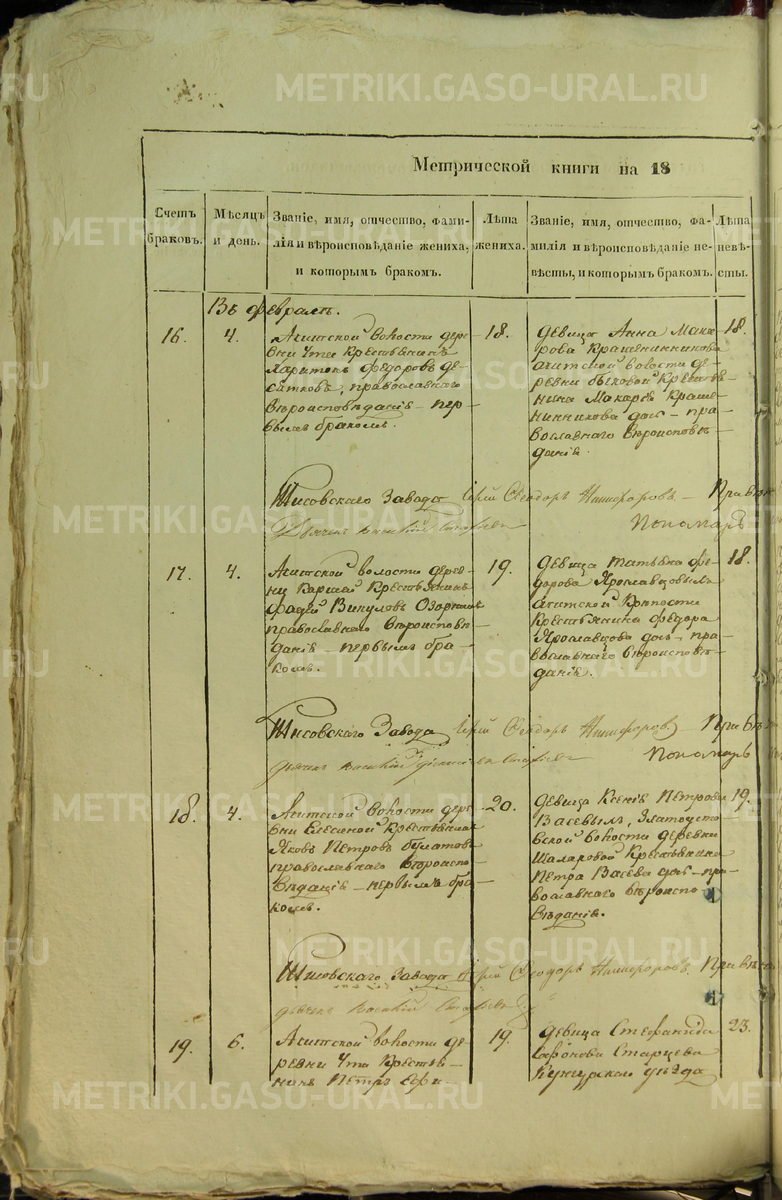 METRIKI.GASO-URAL.RU
Метрической книги на 18
Счетъ браковъ.
Мѣсяцъ и день.
Званіе, имя, отчество, фами-
лія и вѣроисповѣданіе жениха,
и которымъ бракомъ.
Лѣта жениха.
Званіе, имя, отчество, фа-
милія и вѣроисповѣданіе не-
вѣсты, и которымъ бракомъ.
Лѣта невѣ-
сты.
Въ февралѣ.
16.
4.
Ачитской волости дере-
вни Ута Крестьянинъ
Харитонъ Федоровъ Де-
сятковъ, православнаго
вѣроисповѣданія - пер-
вымъ бракомъ.
18.
девица Анна Мака-
рова Крашенинникова
Ачитской волости де-
ревни Быковой Крестья-
нина Макара Краше-
нинникова дочь - пра-
вославнаго вѣроисповѣ-
данія.
18.
Шисовскаго Завода Іерей Ѳеодоръ Никифоровъ. - При
Пономарь
17.
4.
Ачитской волости дерев-
ни Каршей Крестьянинъ
Фадей Викуловъ Озорнинъ
православнаго вѣроисповѣ-
данія - первымъ бра-
комъ.
19.
девица Татьяна Фе-
дорова Ярославцовыхъ
Ачитской Крѣпости
Крестьянина Федора
Ярославцова дочь, пра-
вославнаго вѣроисповѣ-
данія.
18.
Шисовскаго Завода Іерей Ѳеодоръ Никифоровъ. - При
Пономарь
18.
4.
Ачитской волости дере-
вни Елесиной Крестьянинъ
Яковъ Петровъ Булатовъ
православнаго вѣроиспо-
вѣданія - первымъ бра-
комъ.
20.
девица Ксенія Петрова
Васевыхъ, Златоусто-
вской волости деревни
Шалаховой Крестьянина
Петра Васева дочь - пра-
вославнаго вѣроиспо-
вѣданія.
19.
Шисовскаго Завода Іерей Ѳеодоръ Никифоровъ. При
19.
6.
Ачитской волости де-
ревни Ута Крестья-
нинъ Петръ Ефи-
19.
девица Стефанида
Сафонова Старцева
Кунгурскаго уѣзда
23.